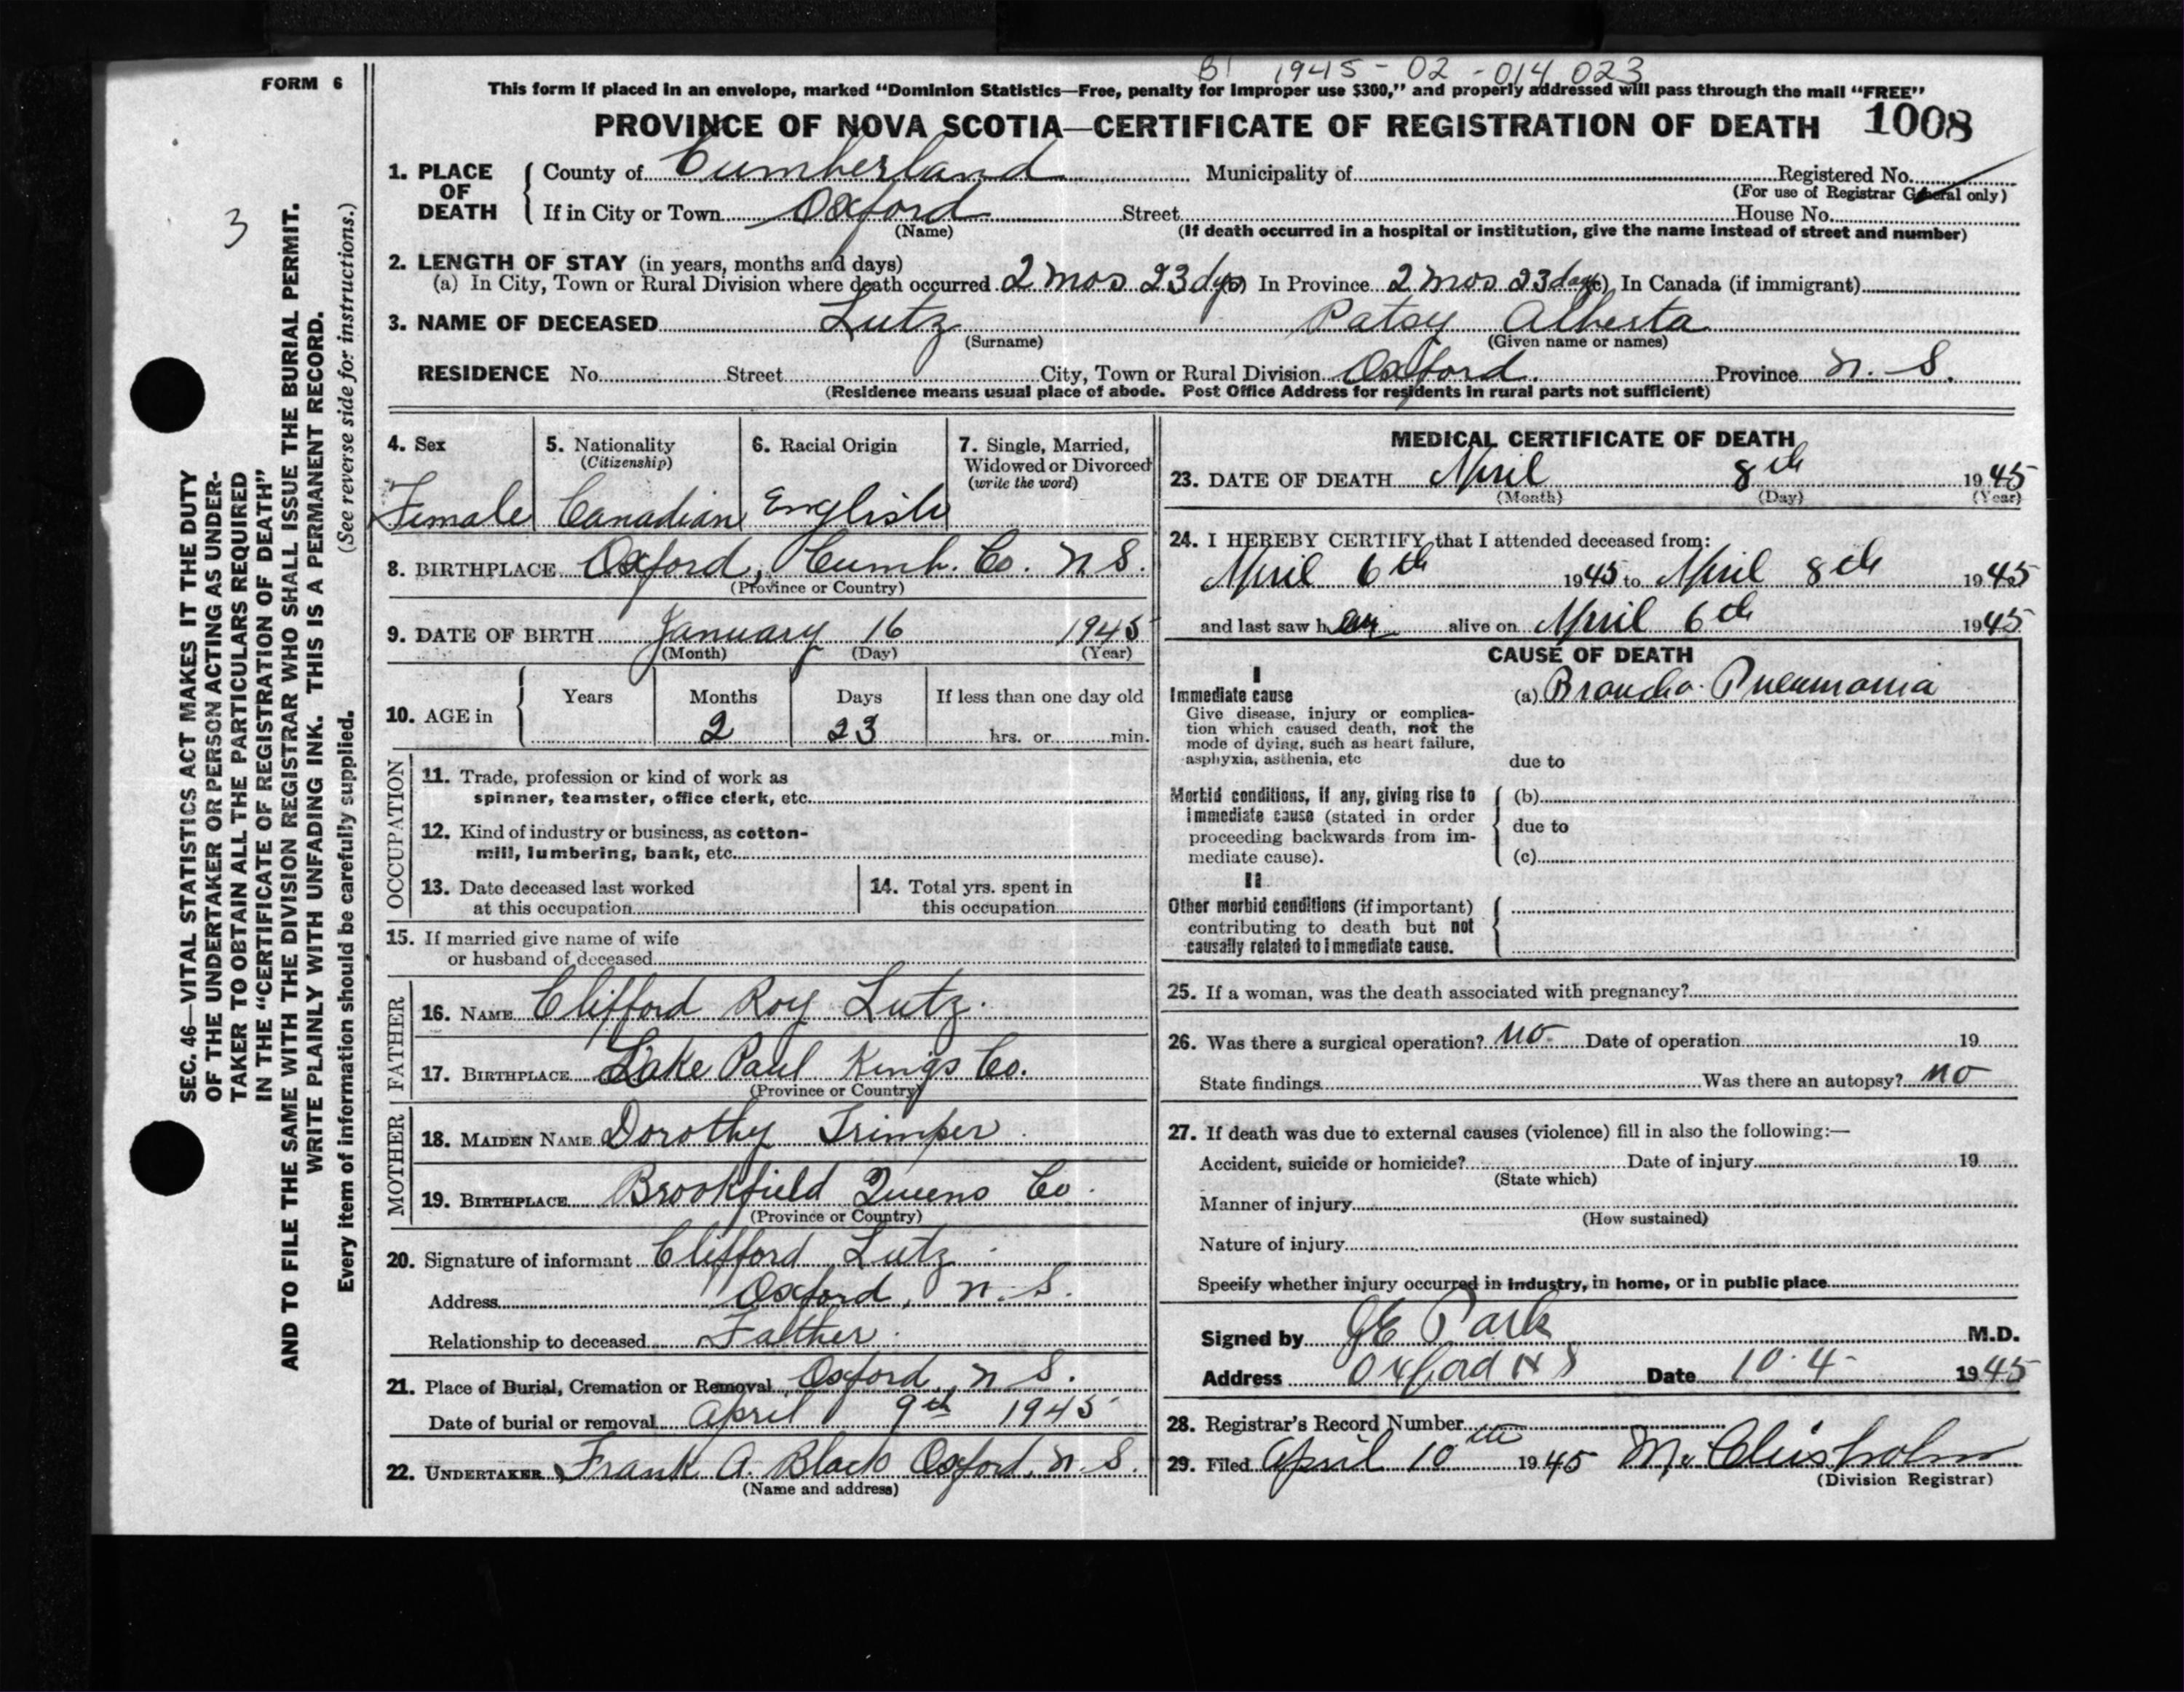 B1 1945-02-014023
FORM 6
This form if placed in an envelope, marked "Dominion Statistics—Free, penalty for improper use $300," and properly addressed will pass through the mail "FREE"
PROVINCE OF NOVA SCOTIA—CERTIFICATE OF REGISTRATION OF DEATH 1008
3
SEC. 46—VITAL STATISTICS ACT MAKES IT THE DUTY
OF THE UNDERTAKER OR PERSON ACTING AS UNDER-
TAKER TO OBTAIN ALL THE PARTICULARS REQUIRED
IN THE "CERTIFICATE OF REGISTRATION OF DEATH"
AND TO FILE THE SAME WITH THE DIVISION REGISTRAR WHO SHALL ISSUE THE BURIAL PERMIT.
WRITE PLAINLY WITH UNFADING INK. THIS IS A PERMANENT RECORD.
Every item of information should be carefully supplied. (See reverse side for instructions.)
1. PLACE OF DEATH
County of Cumberland Municipality of Registered No.
(For use of Registrar General only)
If in City or Town Oxford Street House No.
(Name) (If death occurred in a hospital or institution, give the name instead of street and number)
2. LENGTH OF STAY (in years, months and days)
(a) In City, Town or Rural Division where death occurred 2 mos 23 dys In Province 2 mos 23 days In Canada (if immigrant)
3. NAME OF DECEASED Lutz Patsy Alberta
(Surname) (Given name or names)
RESIDENCE No. Street City, Town or Rural Division Oxford. Province N. S.
(Residence means usual place of abode. Post Office Address for residents in rural parts not sufficient)
4. Sex 5. Nationality 6. Racial Origin 7. Single, Married,
(Citizenship) Widowed or Divorced
(write the word)
Female Canadian English
8. BIRTHPLACE Oxford, Cumb. Co. N S.
(Province or Country)
9. DATE OF BIRTH January 16 1945
(Month) (Day) (Year)
10. AGE in Years Months Days If less than one day old
2 23 hrs. or min.
OCCUPATION
11. Trade, profession or kind of work as
spinner, teamster, office clerk, etc.
12. Kind of industry or business, as cotton-
mill, lumbering, bank, etc.
13. Date deceased last worked 14. Total yrs. spent in
at this occupation this occupation
15. If married give name of wife
or husband of deceased
FATHER
16. NAME Clifford Roy Lutz.
17. BIRTHPLACE Lake Paul Kings Co.
(Province or Country)
MOTHER
18. MAIDEN NAME Dorothy Trimper.
19. BIRTHPLACE Brookfield Queens Co.
(Province or Country)
20. Signature of informant Clifford Lutz.
Address Oxford, N. S.
Relationship to deceased Father.
21. Place of Burial, Cremation or Removal Oxford, N S.
Date of burial or removal April 9th 1945
22. UNDERTAKER Frank A. Black Oxford, N. S.
(Name and address)
MEDICAL CERTIFICATE OF DEATH
23. DATE OF DEATH April 8th 1945
(Month) (Day) (Year)
24. I HEREBY CERTIFY that I attended deceased from:
April 6th 1945 to April 8th 1945
and last saw her alive on April 6th 1945
CAUSE OF DEATH
I
Immediate cause (a) Broncho-Pneumonia
Give disease, injury or complica-
tion which caused death, not the
mode of dying, such as heart failure,
asphyxia, asthenia, etc due to
Morbid conditions, if any, giving rise to (b)
immediate cause (stated in order due to
proceeding backwards from im-
mediate cause). (c)
II
Other morbid conditions (if important)
contributing to death but not
causally related to immediate cause.
25. If a woman, was the death associated with pregnancy?
26. Was there a surgical operation? no- Date of operation 19
State findings Was there an autopsy? no
27. If death was due to external causes (violence) fill in also the following:—
Accident, suicide or homicide? Date of injury 19
(State which)
Manner of injury
(How sustained)
Nature of injury
Specify whether injury occurred in industry, in home, or in public place
Signed by JE Park M.D.
Address Oxford N S Date 10-4- 1945
28. Registrar's Record Number
29. Filed April 10th 1945 M. Chisholm
(Division Registrar)